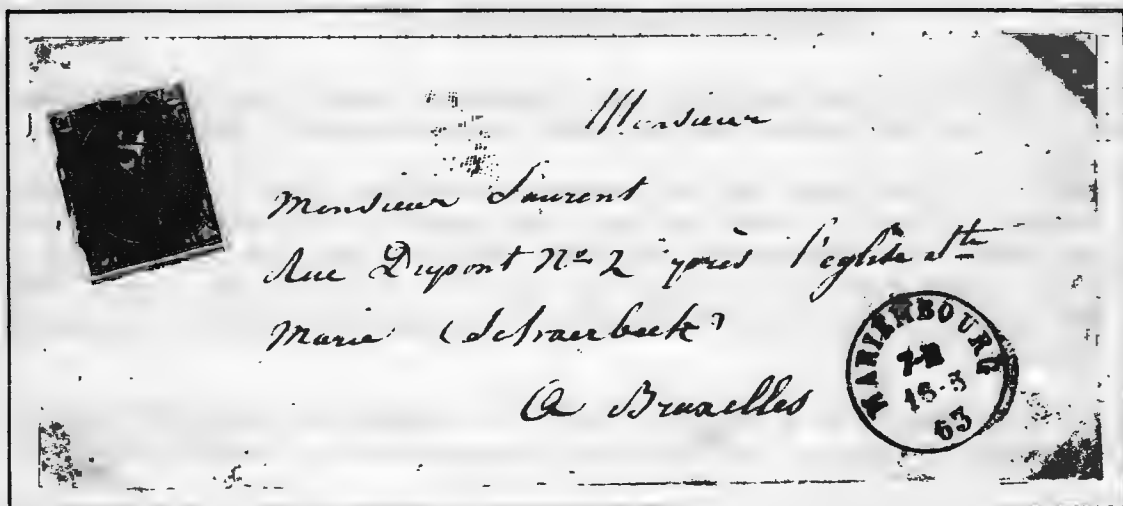 Monsieur
Monsieur Laurent
Rue Dupont Nº 2 près l'eglise Ste
Marie (Schaerbeek)
A Bruxelles
MARIEMBOURG
16-3
63